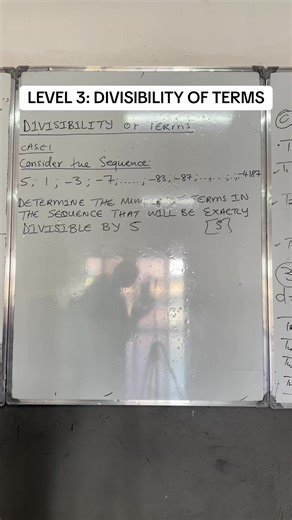 LEVEL 3: DIVISIBILITY OF TERMS
DIVISIBILITY OF TERMS
CASE:1
Consider the Sequence:
5; 1; -3; -7; ....; -83; -87; ... ; -4187
DETERMINE THE TERMS IN
THE SEQUENCE THAT WILL BE EXACTLY
DIVISIBLE BY 5 [5]